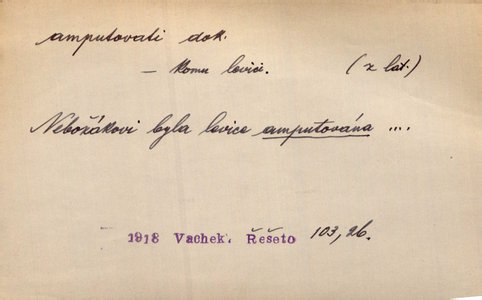 amputovati dok.
– komu levici. (z lat.)
Nebožákovi byla levice amputována ....
1918 Vachek. Řešeto 103, 26.